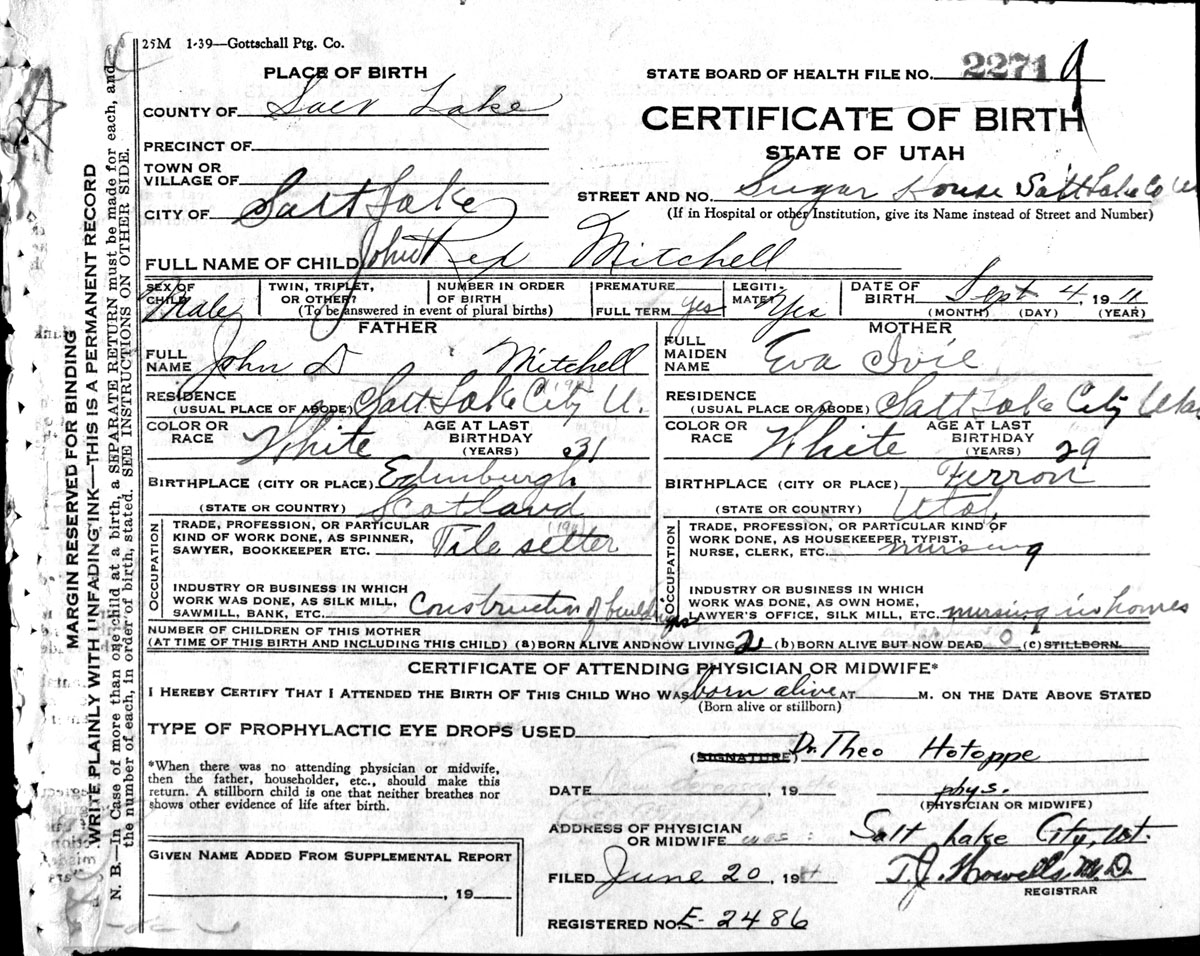 25M 1-39—Gottschall Ptg. Co.
PLACE OF BIRTH
STATE BOARD OF HEALTH FILE NO. 2271 9
COUNTY OF Salt Lake
CERTIFICATE OF BIRTH
PRECINCT OF
STATE OF UTAH
TOWN OR
VILLAGE OF
STREET AND NO. Sugar House Salt Lake Co
CITY OF Salt Lake
(If in Hospital or other Institution, give its Name instead of Street and Number)
FULL NAME OF CHILD John Rex Mitchell
SEX OF CHILD Male
TWIN, TRIPLET, OR OTHER?
NUMBER IN ORDER OF BIRTH
(To be answered in event of plural births)
PREMATURE
FULL TERM yes
LEGITI-MATE? Yes
DATE OF BIRTH Sept 4, 1911
(MONTH) (DAY) (YEAR)
FATHER
FULL NAME John D Mitchell
RESIDENCE
(USUAL PLACE OF ABODE) Salt Lake City U. (1911)
COLOR OR RACE White
AGE AT LAST BIRTHDAY (YEARS) 31
BIRTHPLACE (CITY OR PLACE) Edinburgh
(STATE OR COUNTRY) Scotland
OCCUPATION
TRADE, PROFESSION, OR PARTICULAR
KIND OF WORK DONE, AS SPINNER,
SAWYER, BOOKKEEPER ETC. Tile setter (1911)
INDUSTRY OR BUSINESS IN WHICH
WORK WAS DONE, AS SILK MILL,
SAWMILL, BANK, ETC. Construction of buildings
MOTHER
FULL MAIDEN NAME Eva Ivie
RESIDENCE
(USUAL PLACE OR ABODE) Salt Lake City Utah
COLOR OR RACE White
AGE AT LAST BIRTHDAY (YEARS) 29
BIRTHPLACE (CITY OR PLACE) Ferron
(STATE OR COUNTRY) Utah
OCCUPATION
TRADE, PROFESSION, OR PARTICULAR KIND OF
WORK DONE, AS HOUSEKEEPER, TYPIST,
NURSE, CLERK, ETC. nursing
INDUSTRY OR BUSINESS IN WHICH
WORK WAS DONE, AS OWN HOME,
LAWYER'S OFFICE, SILK MILL, ETC. nursing in homes
NUMBER OF CHILDREN OF THIS MOTHER
(AT TIME OF THIS BIRTH AND INCLUDING THIS CHILD) (a) BORN ALIVE AND NOW LIVING 2 (b) BORN ALIVE BUT NOW DEAD 0 (c) STILLBORN
CERTIFICATE OF ATTENDING PHYSICIAN OR MIDWIFE*
I HEREBY CERTIFY THAT I ATTENDED THE BIRTH OF THIS CHILD WHO WAS born alive AT M. ON THE DATE ABOVE STATED
(Born alive or stillborn)
TYPE OF PROPHYLACTIC EYE DROPS USED
(SIGNATURE) Dr. Theo Hotoppe
*When there was no attending physician or midwife,
then the father, householder, etc., should make this
return. A stillborn child is one that neither breathes nor
shows other evidence of life after birth.
DATE , 19
phys.
(PHYSICIAN OR MIDWIFE)
ADDRESS OF PHYSICIAN
OR MIDWIFE was: Salt Lake City, Ut.
GIVEN NAME ADDED FROM SUPPLEMENTAL REPORT
, 19
FILED June 20, 194
T.J. Howells, M.D.
REGISTRAR
REGISTERED NO. E-2486
MARGIN RESERVED FOR BINDING
WRITE PLAINLY WITH UNFADING INK—THIS IS A PERMANENT RECORD
N. B.—In Case of more than one child at a birth, a SEPARATE RETURN must be made for each, and
the number of each, in order of birth, stated. SEE INSTRUCTIONS ON OTHER SIDE.